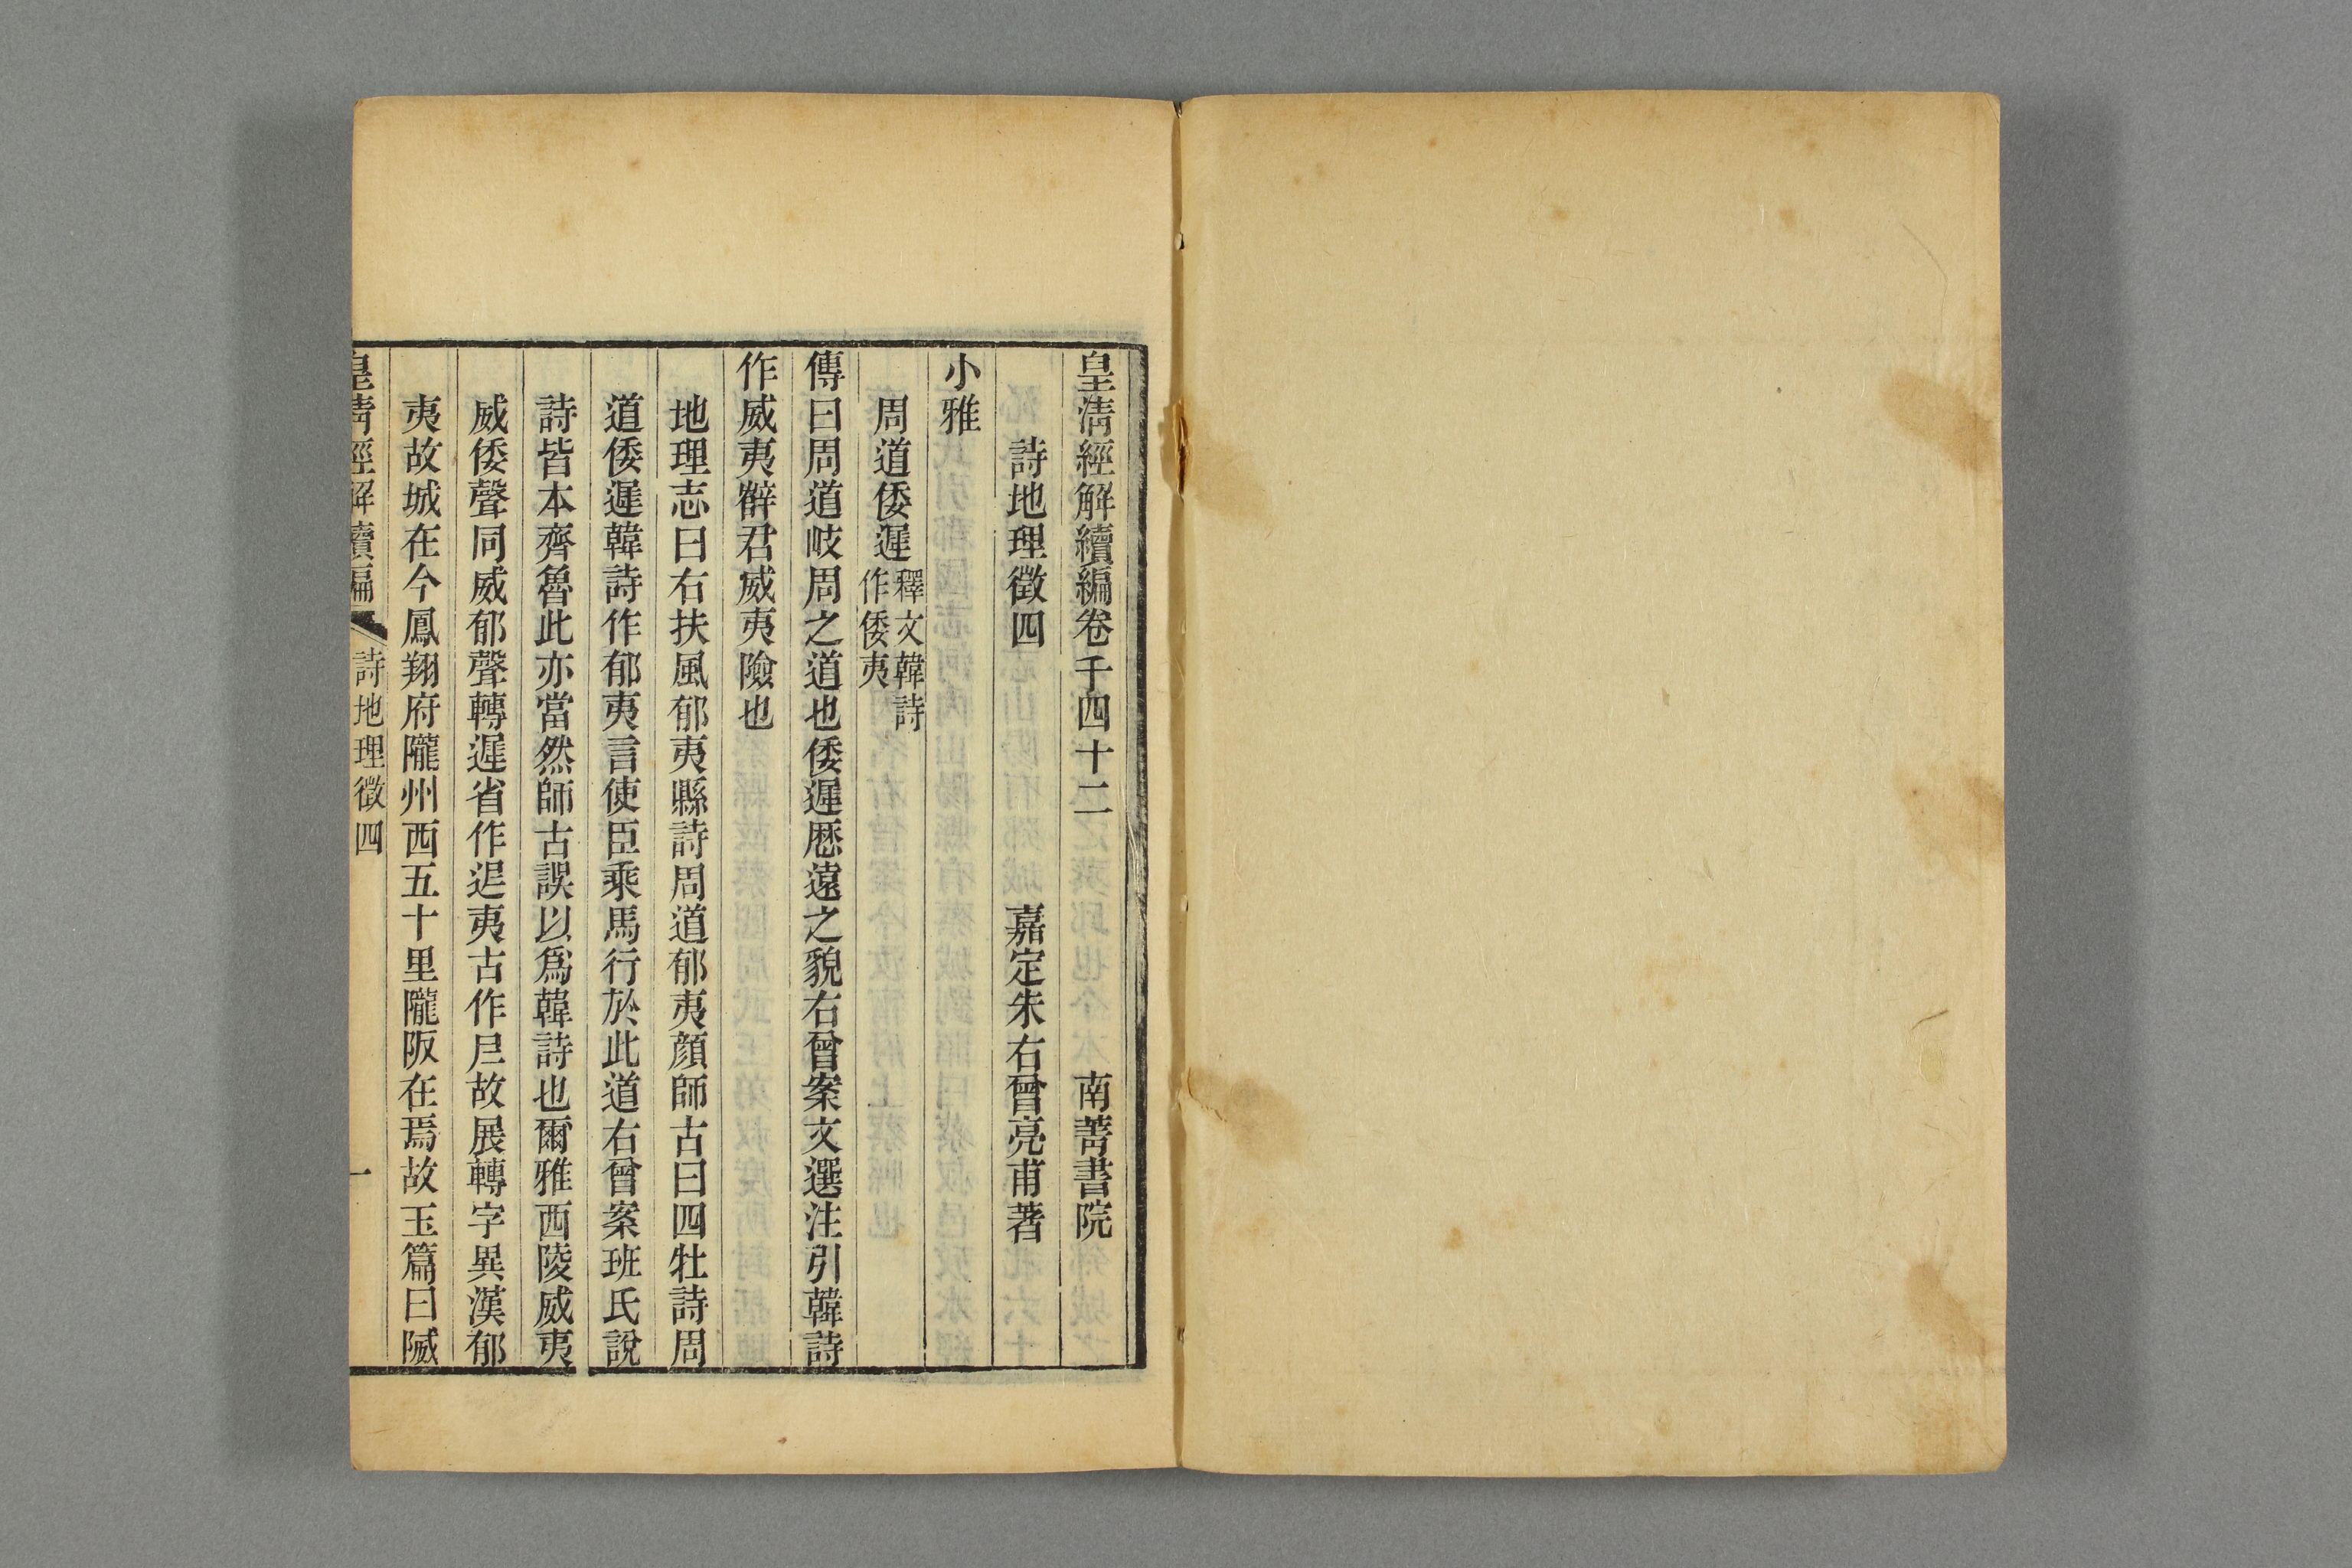 皇清經解續編卷千四十二 南菁書院
詩地理徵四 嘉定朱右曾亮甫著
小雅
周道倭遲釋文韓詩作倭夷
傳曰周道岐周之道也倭遲歷遠之貌右曾案文選注引韓詩
作威夷薛君威夷險也
地理志曰右扶風郁夷縣詩周道郁夷顏師古曰四牡詩周
道倭遲韓詩作郁夷言使臣乘馬行於此道右曾案班氏說
詩皆本齊魯此亦當然師古誤以爲韓詩也爾雅西陵威夷
威倭聲同威郁聲轉遲省作𨒈夷古作𡰥故展轉字異漢郁
夷故城在今鳳翔府隴州西五十里隴阪在焉故玉篇曰隇
皇清經解續編 詩地理徵四 一